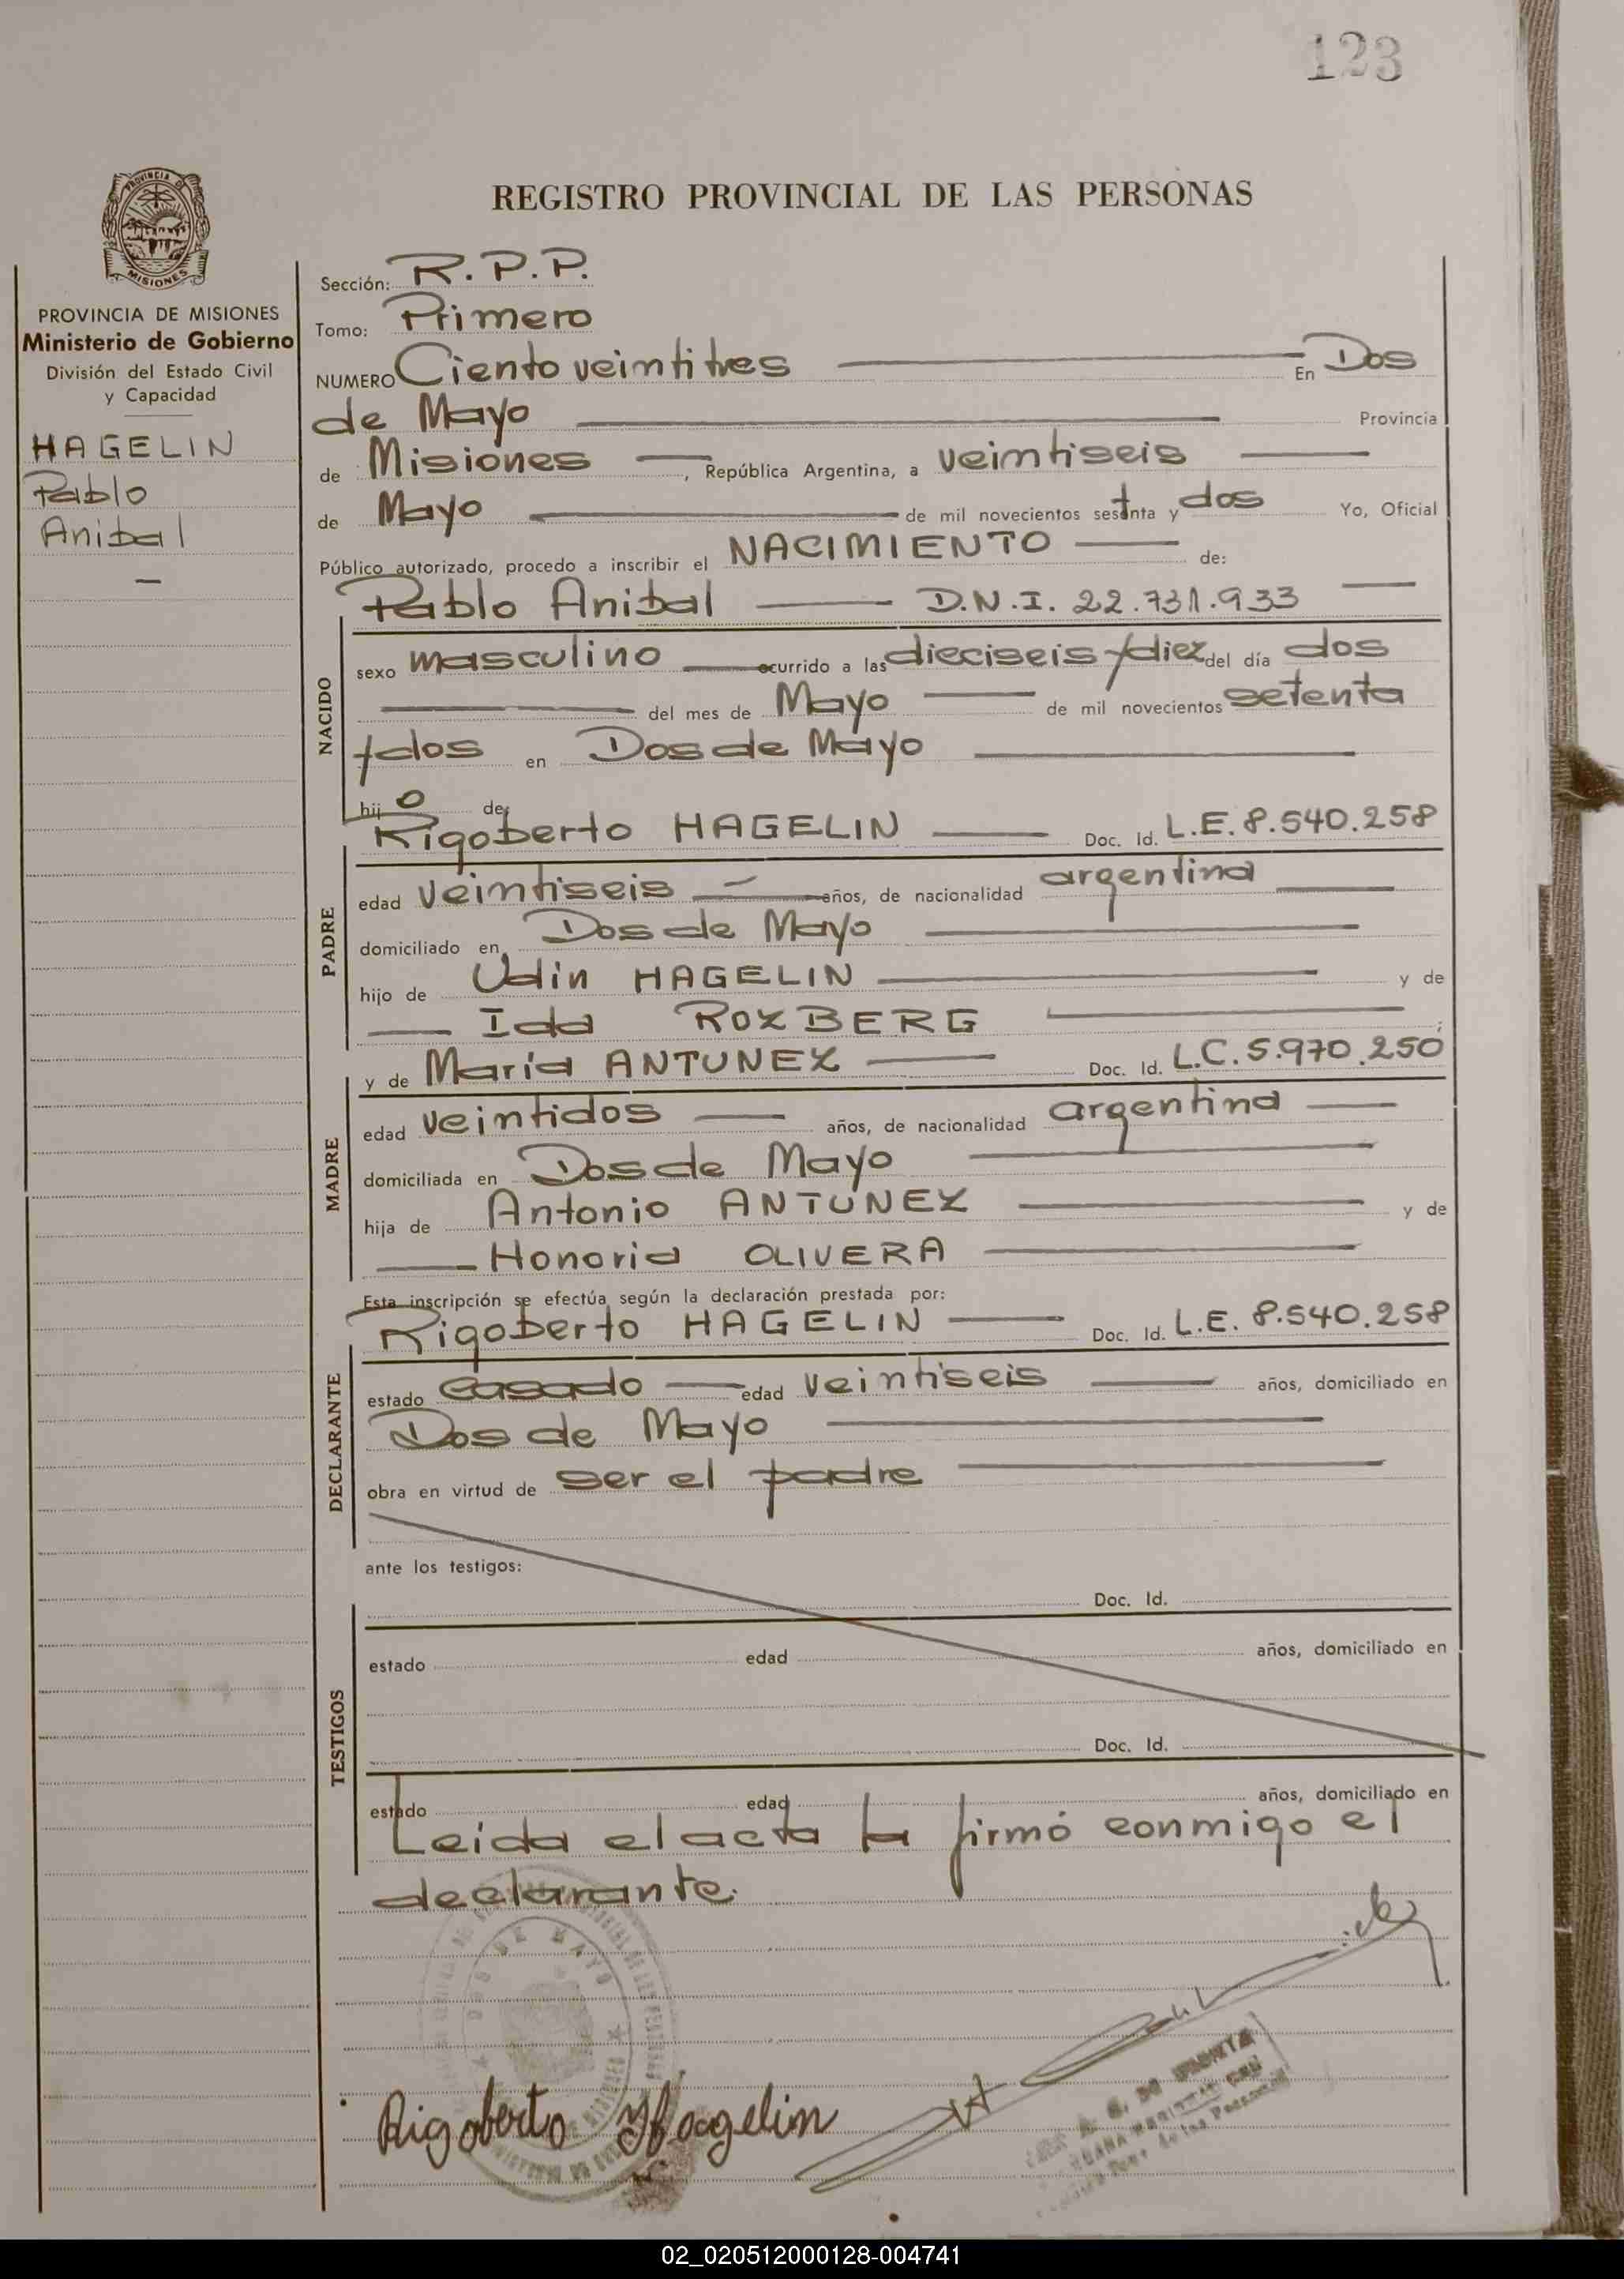 123
PROVINCIA DE
MISIONES
REGISTRO PROVINCIAL DE LAS PERSONAS
PROVINCIA DE MISIONES
Ministerio de Gobierno
División del Estado Civil
y Capacidad
HAGELIN
Pablo
Anibal
Sección: R.P.P.
Tomo: Primero
NUMERO Ciento veintitres En Dos
de Mayo Provincia
de Misiones, República Argentina, a veintiseis
de Mayo de mil novecientos sesenta y dos Yo, Oficial
Público autorizado, procedo a inscribir el NACIMIENTO de:
Pablo Anibal D.N.I. 22.731.933
NACIDO
sexo masculino ocurrido a las dieciseis y diez del día dos
del mes de Mayo de mil novecientos setenta
y dos en Dos de Mayo
hijo de
Rigoberto HAGELIN Doc. Id. L.E. 8.540.258
PADRE
edad veintiseis años, de nacionalidad argentina
domiciliado en Dos de Mayo
hijo de Udin HAGELIN y de
Ida ROZBERG ;
y de María ANTUNEZ Doc. Id. L.C. 5.970.250
MADRE
edad veintidos años, de nacionalidad argentina
domiciliada en Dos de Mayo
hija de Antonio ANTUNEZ y de
Honoria OLIVERA
Esta inscripción se efectúa según la declaración prestada por:
Rigoberto HAGELIN Doc. Id. L.E. 8.540.258
DECLARANTE
estado casado edad veintiseis años, domiciliado en
Dos de Mayo
obra en virtud de ser el padre
ante los testigos:
Doc. Id.
TESTIGOS
estado edad años, domiciliado en
Doc. Id.
estado edad años, domiciliado en
Leida el acta la firmó conmigo el
declarante.
DOS DE MAYO
Rigoberto Hagelin
02_020512000128-004741